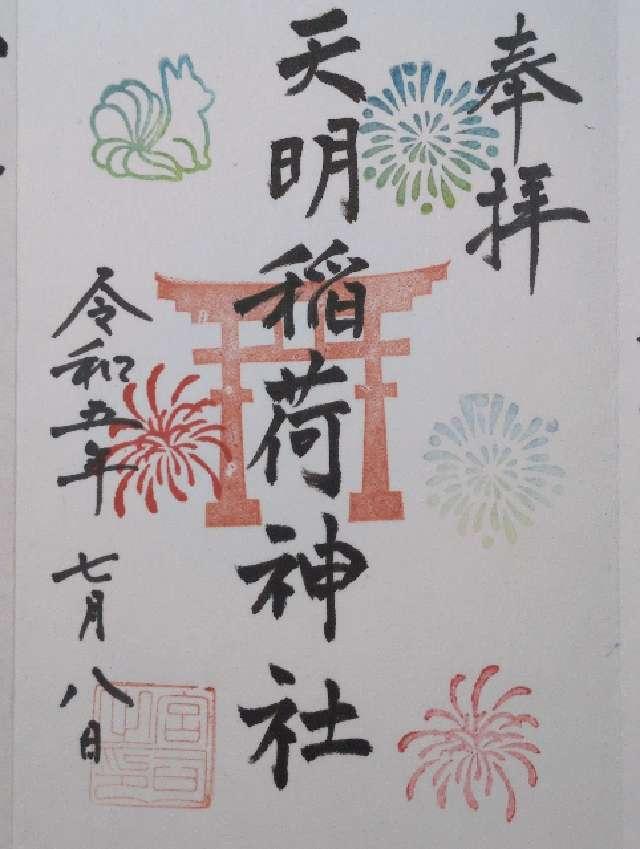 奉拝
天明稲荷神社
令和五年七月八日